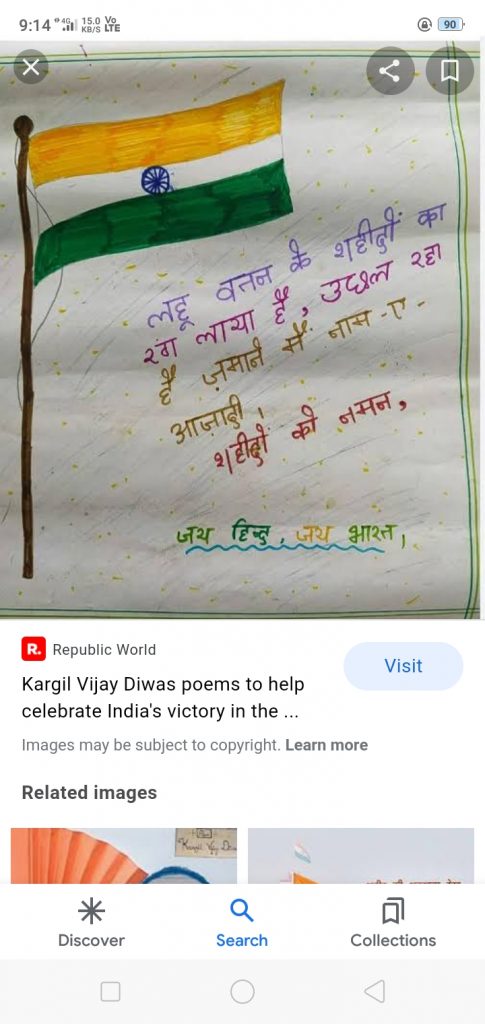 9:14 4G 15.0 KB/S Vo LTE 90
लहू वतन के शहीदों का
रंग लाया है, उछल रहा
है ज़माने में नास-ए-
आज़ादी।
शहीदों को नमन,
जय हिन्द, जय भारत,
R. Republic World
Visit
Kargil Vijay Diwas poems to help
celebrate India's victory in the ...
Images may be subject to copyright. Learn more
Related images
Kargil Vijay
Discover Search Collections